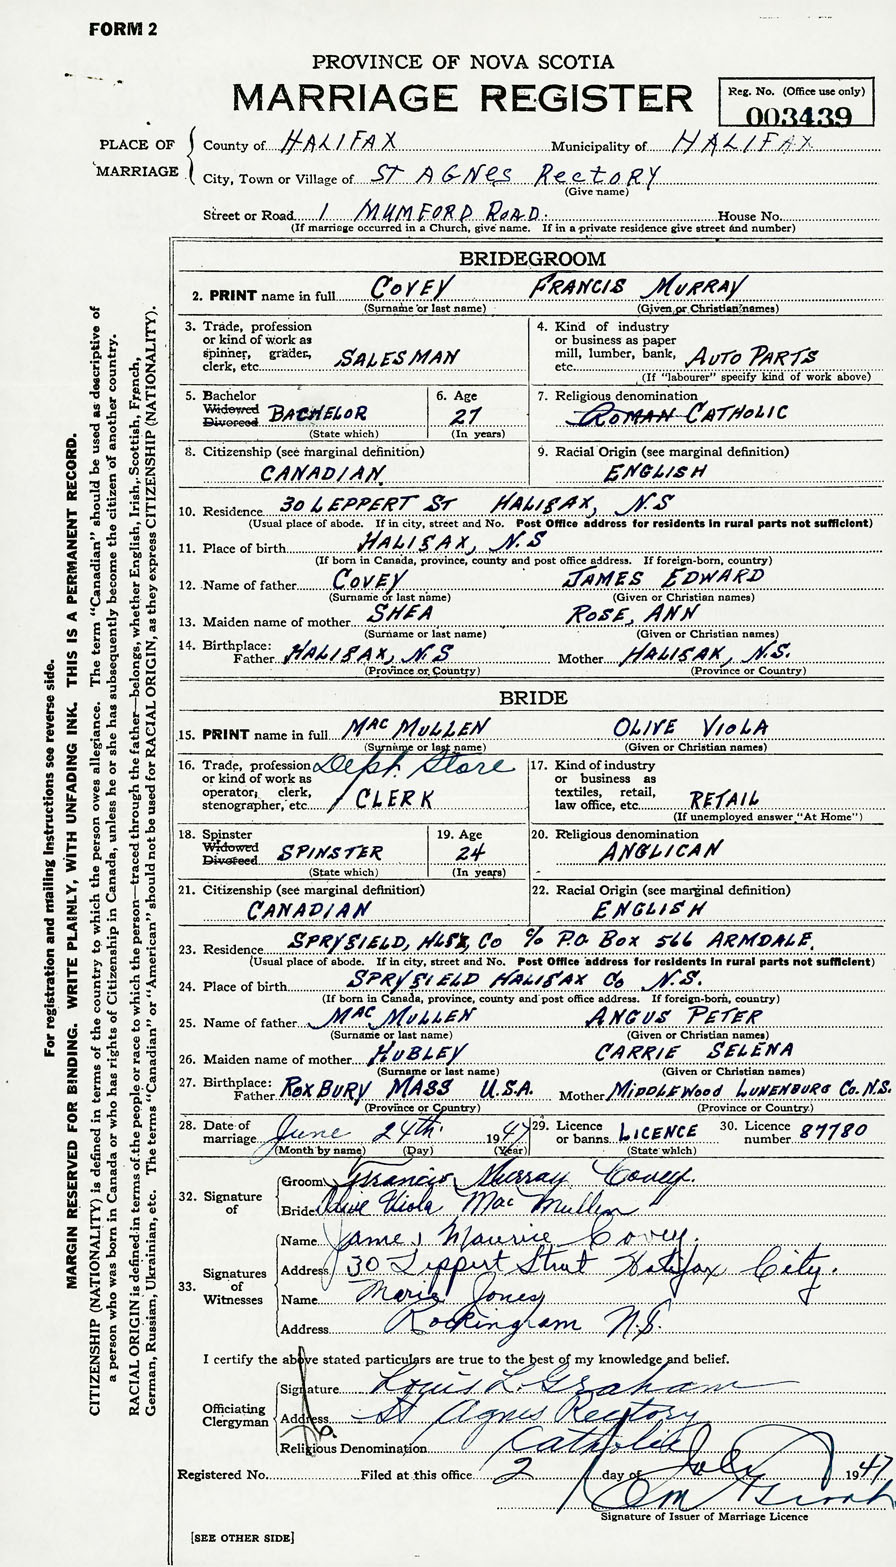 FORM 2
PROVINCE OF NOVA SCOTIA
MARRIAGE REGISTER
Reg. No. (Office use only)
003439
PLACE OF MARRIAGE
County of HALIFAX Municipality of HALIFAX
City, Town or Village of ST AGNES RECTORY
(Give name)
Street or Road 1 MUMFORD ROAD. House No.
(If marriage occurred in a Church, give name. If in a private residence give street and number)
BRIDEGROOM
2. PRINT name in full COVEY FRANCIS MURRAY
(Surname or last name) (Given or Christian names)
3. Trade, profession or kind of work as spinner, grader, clerk, etc. SALESMAN
4. Kind of industry or business as paper mill, lumber, bank, etc. AUTO PARTS
(If "labourer" specify kind of work above)
5. Bachelor Widowed Divorced BACHELOR
(State which)
6. Age 27
(In years)
7. Religious denomination ROMAN CATHOLIC
8. Citizenship (see marginal definition) CANADIAN
9. Racial Origin (see marginal definition) ENGLISH
10. Residence 30 LEPPERT ST HALIFAX, N.S
(Usual place of abode. If in city, street and No. Post Office address for residents in rural parts not sufficient)
11. Place of birth HALIFAX, N.S
(If born in Canada, province, county and post office address. If foreign-born, country)
12. Name of father COVEY JAMES EDWARD
(Surname or last name) (Given or Christian names)
13. Maiden name of mother SHEA ROSE, ANN
(Surname or last name) (Given or Christian names)
14. Birthplace: Father HALIFAX, N.S Mother HALIFAX, N.S.
(Province or Country) (Province or Country)
BRIDE
15. PRINT name in full MAC MULLEN OLIVE VIOLA
(Surname or last name) (Given or Christian names)
16. Trade, profession or kind of work as operator, clerk, stenographer, etc. Dept. Store CLERK
17. Kind of industry or business as textiles, retail, law office, etc. RETAIL
(If unemployed answer "At Home")
18. Spinster Widowed Divorced SPINSTER
(State which)
19. Age 24
(In years)
20. Religious denomination ANGLICAN
21. Citizenship (see marginal definition) CANADIAN
22. Racial Origin (see marginal definition) ENGLISH
23. Residence SPRYFIELD, HLFX, CO c/o P.O. BOX 566 ARMDALE.
(Usual place of abode. If in city, street and No. Post Office address for residents in rural parts not sufficient)
24. Place of birth SPRYFIELD HALIFAX CO N.S.
(If born in Canada, province, county and post office address. If foreign-born, country)
25. Name of father MAC MULLEN ANGUS PETER
(Surname or last name) (Given or Christian names)
26. Maiden name of mother HUBLEY CARRIE SELENA
(Surname or last name) (Given or Christian names)
27. Birthplace: Father ROXBURY MASS U.S.A. Mother MIDDLEWOOD LUNENBURG CO. N.S.
(Province or Country) (Province or Country)
28. Date of marriage June 24th. 1947
(Month by name) (Day) (Year)
29. Licence or banns LICENCE
(State which)
30. Licence number 87780
32. Signature of
Groom Francis Murray Covey.
Bride Olive Viola Mac Mullen
33. Signatures of Witnesses
Name James Maurice Covey.
Address 30 Lippert Street Halifax City.
Name Marie Jones
Address Rockingram N.S.
I certify the above stated particulars are true to the best of my knowledge and belief.
Officiating Clergyman
Signature Louis L. Graham
Address St Agnes Rectory
Religious Denomination Catholic
Registered No. Filed at this office 2 day of July 1947
Signature of Issuer of Marriage Licence
[SEE OTHER SIDE]
For registration and mailing instructions see reverse side.
MARGIN RESERVED FOR BINDING. WRITE PLAINLY, WITH UNFADING INK. THIS IS A PERMANENT RECORD.
CITIZENSHIP (NATIONALITY) is defined in terms of the country to which the person owes allegiance. The term "Canadian" should be used as descriptive of
a person who was born in Canada or who has rights of Citizenship in Canada, unless he or she has subsequently become the citizen of another country.
RACIAL ORIGIN is defined in terms of the people or race to which the person—traced through the father—belongs, whether English, Irish, Scottish, French,
German, Russian, Ukrainian, etc. The terms "Canadian" or "American" should not be used for RACIAL ORIGIN, as they express CITIZENSHIP (NATIONALITY).